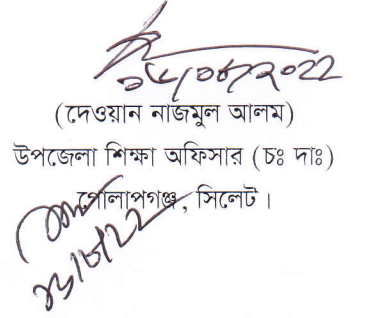 (দেওয়ান নাজমুল আলম)
উপজেলা শিক্ষা অফিসার (চঃ দাঃ)
গোলাপগঞ্জ, সিলেট।